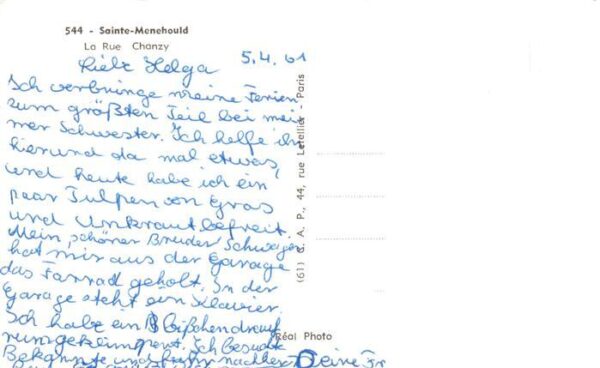 544 - Sainte-Menehould
La Rue Chanzy
5.4.61
Liebe Helga
Ich verbringe meine Ferien
zum größten Teil bei mei
ner Schwester. Ich helfe ihr
hier und da mal etwas,
und heute habe ich ein
paar Tulpen von Gras
und Unkraut befreit.
Mein schöner Bruder Schwager
hat mir aus der Garage
das Farrad geholt. In der
Garage steht ein Klavier.
Ich habe ein Bißchen drauf
rumgeklimpert. Ich besuche
Bekannte und nachher
Deine
Réal Photo
(61) C. A. P., 44, rue Letellier - Paris